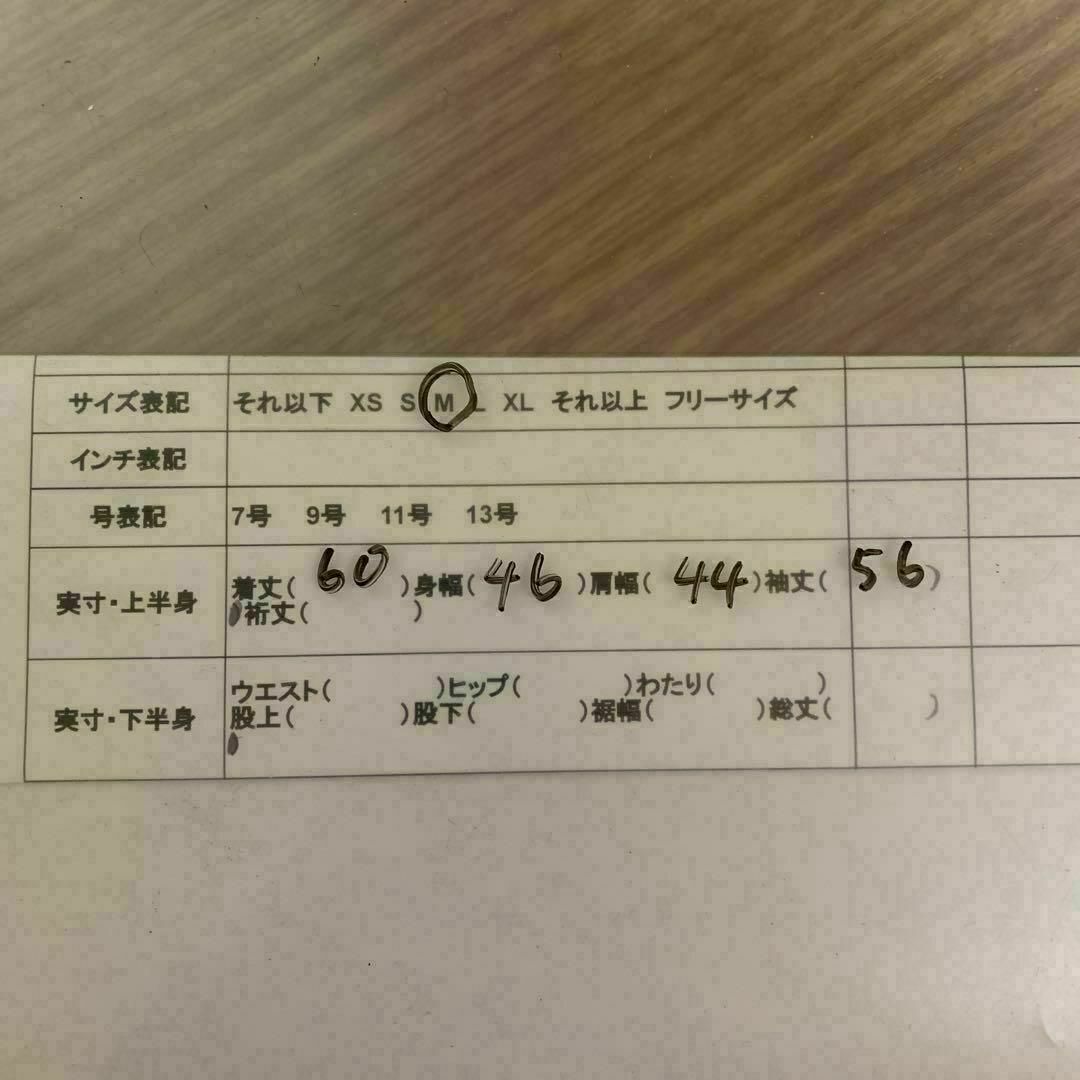 サイズ表記 それ以下 XS S M L XL それ以上 フリーサイズ
インチ表記
号表記 7号 9号 11号 13号
実寸・上半身 着丈( 60 )身幅( 46 )肩幅( 44 )袖丈( 56 )
裄丈( )
実寸・下半身 ウエスト( )ヒップ( )わたり( )
股上( )股下( )裾幅( )総丈( )